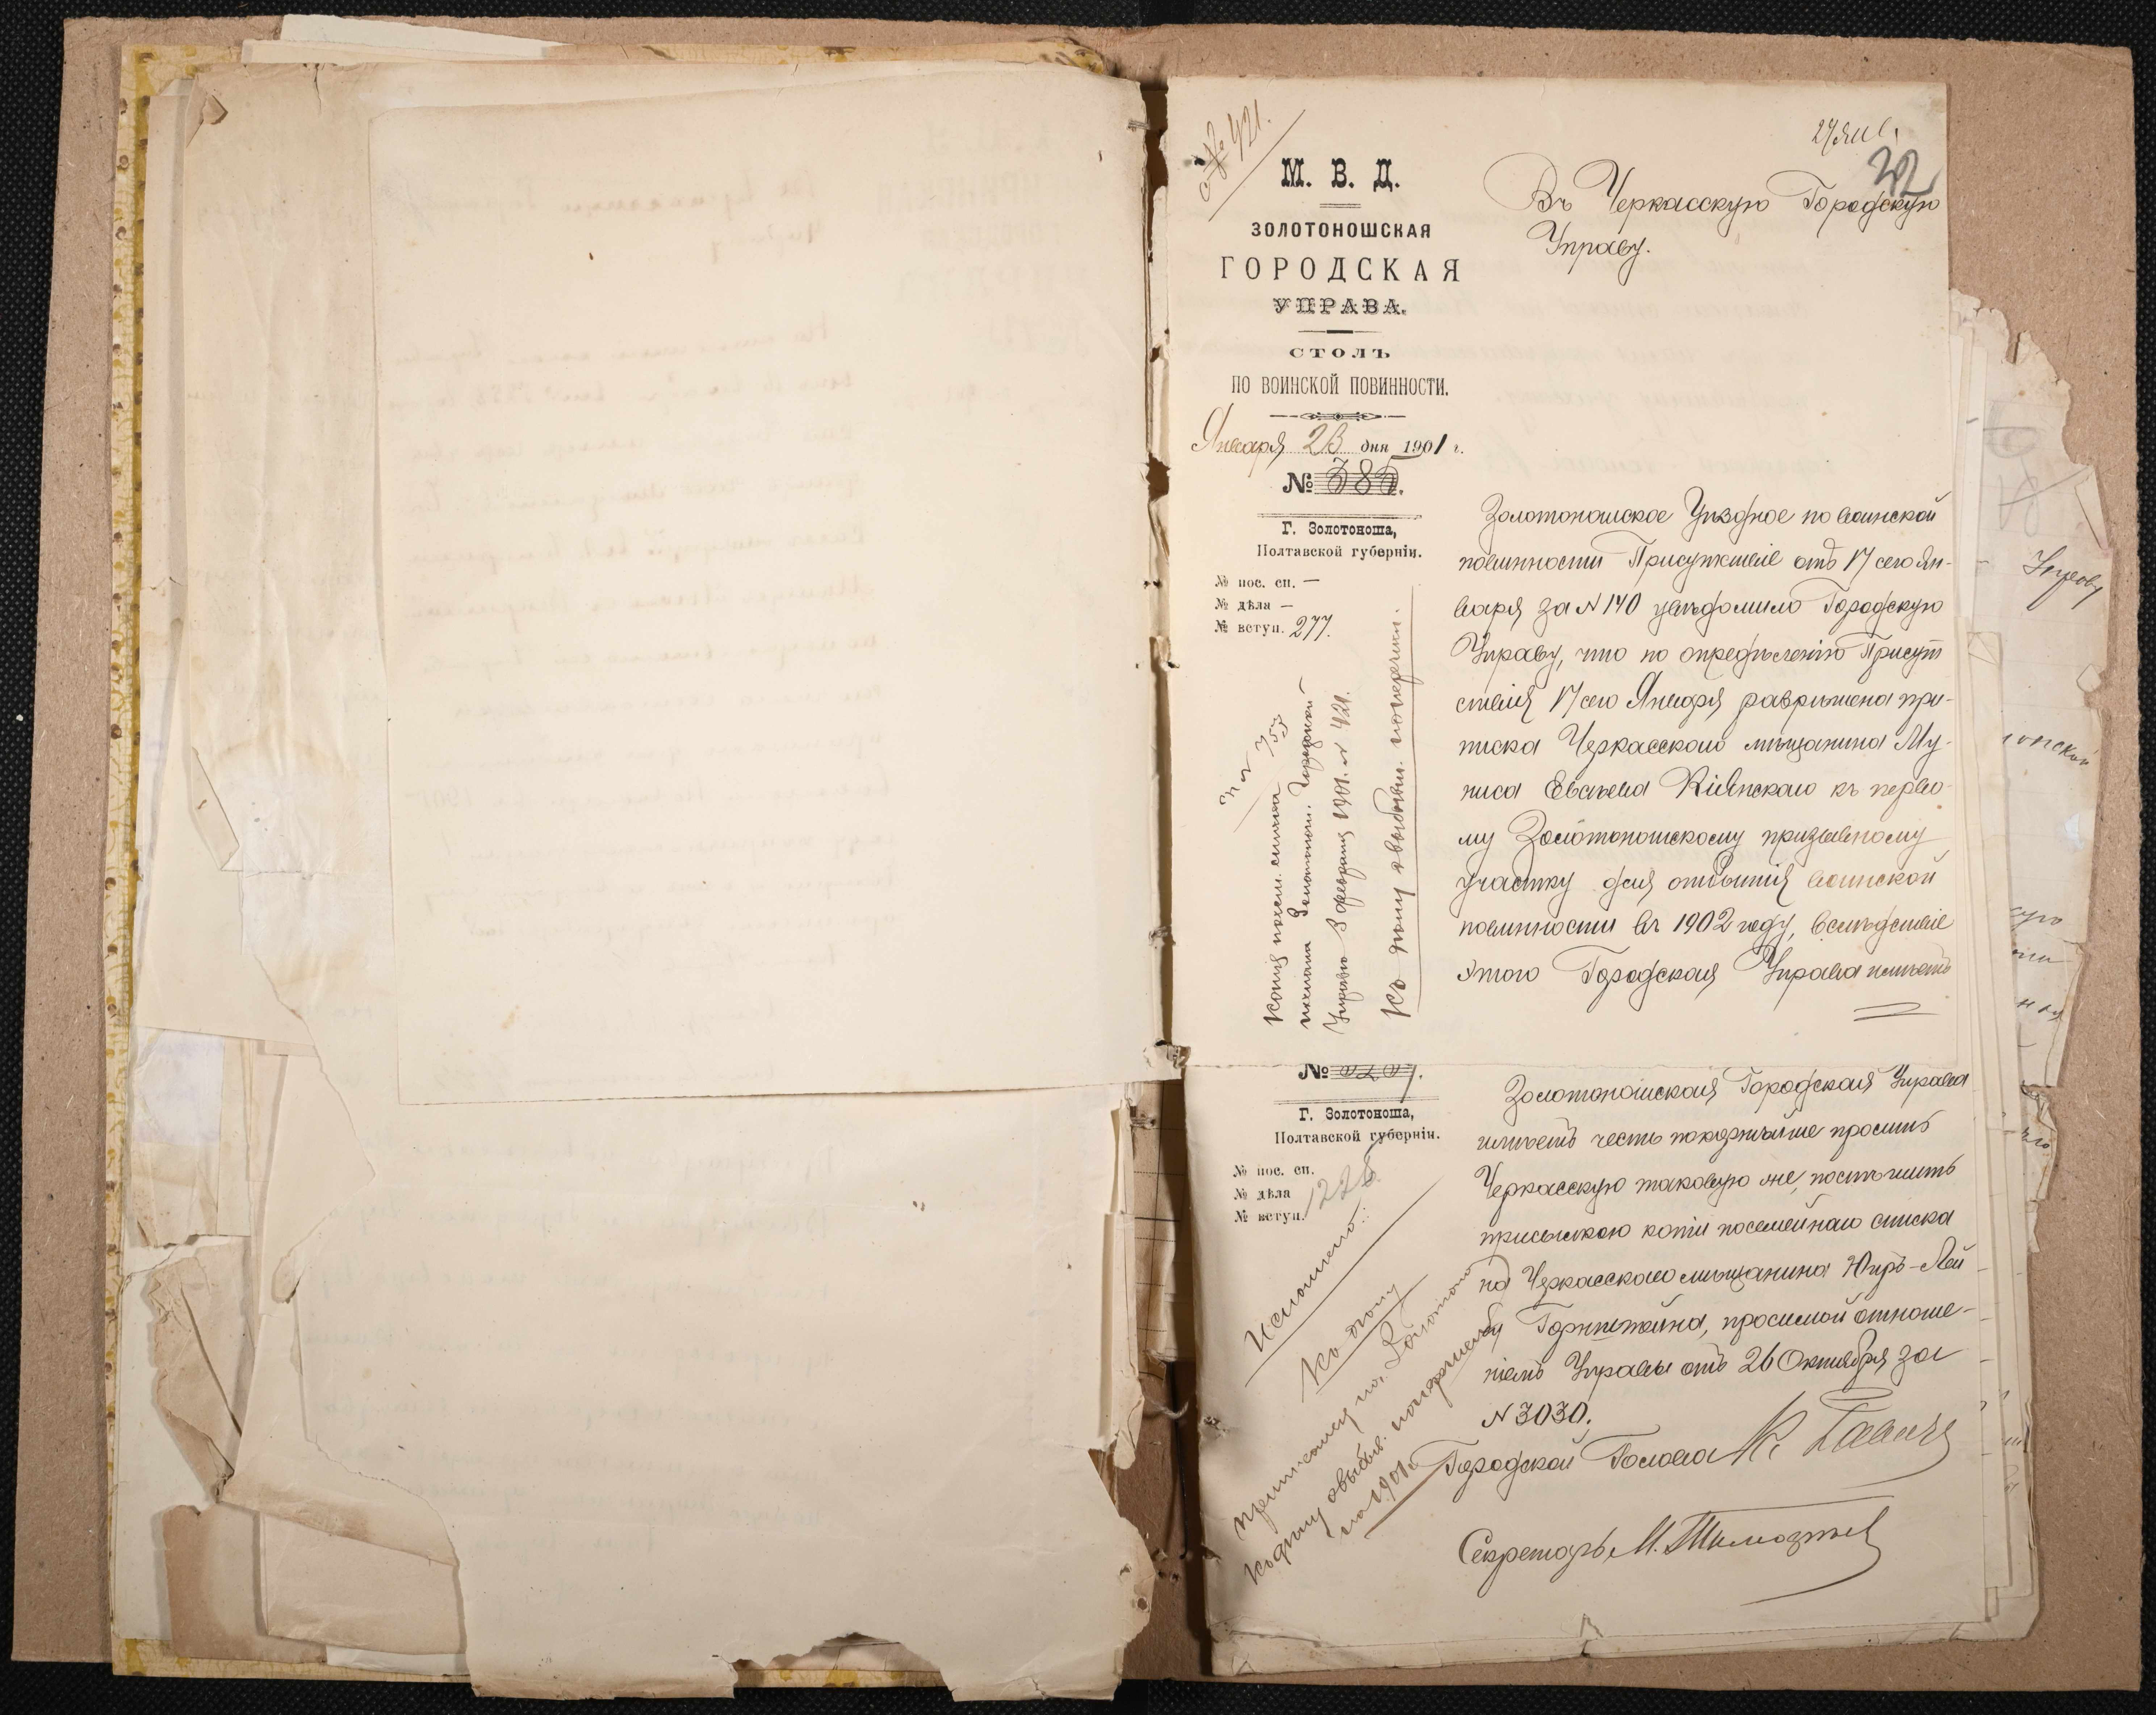 № 421.
27 Янв.
32
М. В. Д.
ЗОЛОТОНОШСКАЯ
ГОРОДСКАЯ
УПРАВА.
СТОЛЪ
ПО ВОИНСКОЙ ПОВИННОСТИ.
Января 23 дня 1901 г.
№ 385.
Г. Золотоноша,
Полтавской губерніи.
№ пос. сп. —
№ дѣла —
№ вступ. 277.
Въ Черкасскую Городскую
Управу.
Золотоношское Уѣздное по воинской
повинности Присутствіе отъ 17 сего Ян-
варя за № 140 увѣдомило Городскую
Управу, что по опредѣленію Присут
ствія 17 сего Января разрѣшена при-
писка Черкасскаго мѣщанина Му-
ниса Евсѣева Кіевскаго къ перво-
му Золотоношскому призывному
участку для отбытія воинской
повинности въ 1902 году, вслѣдствіе
этого Городская Управа имѣетъ
Копія посем. списка
послана Золотонош. Городской
Управѣ 3 февраля 1901 г. № 421.
Къ дѣлу о выбывш.
№
Г. Золотоноша,
Полтавской губерніи.
№ пос. сп.
№ дѣла
№ вступ.
Золотоношская Городская Управа
имѣетъ честь покорнѣйше просить
Черкасскую таковую же, поспѣшить
присылкою копіи посемейнаго списка
на Черкасскаго мѣщанина Юдь-Лей
Горнштейна, просимой отноше-
ніемъ Управы отъ 26 Октября за
№ 3030.
Городской Голова
Секретарь М.
Исполнено
Къ дѣлу
на 1901 г.
Управу